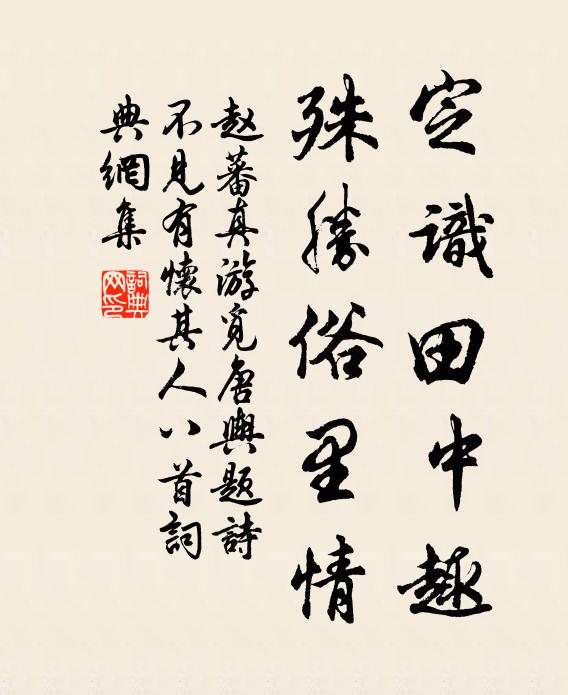 定識田中趣
殊勝俗里情
赵蕃真游觅唐舆题詩
不見有懷其人八首詞
典網集
詞典
网印